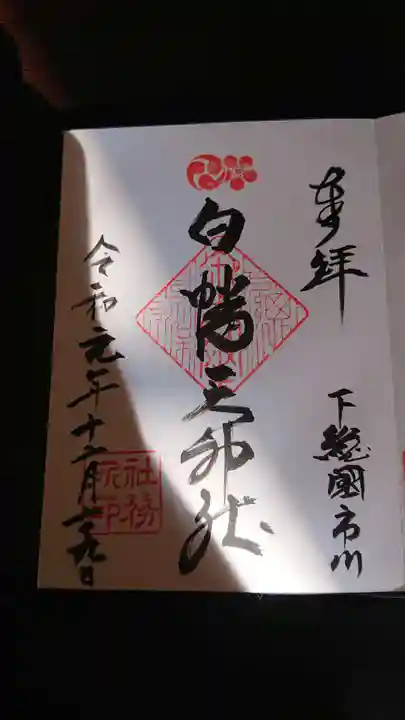 奉拝
下総國市川
白幡天神社
令和元年十二月廿九日
社務所印